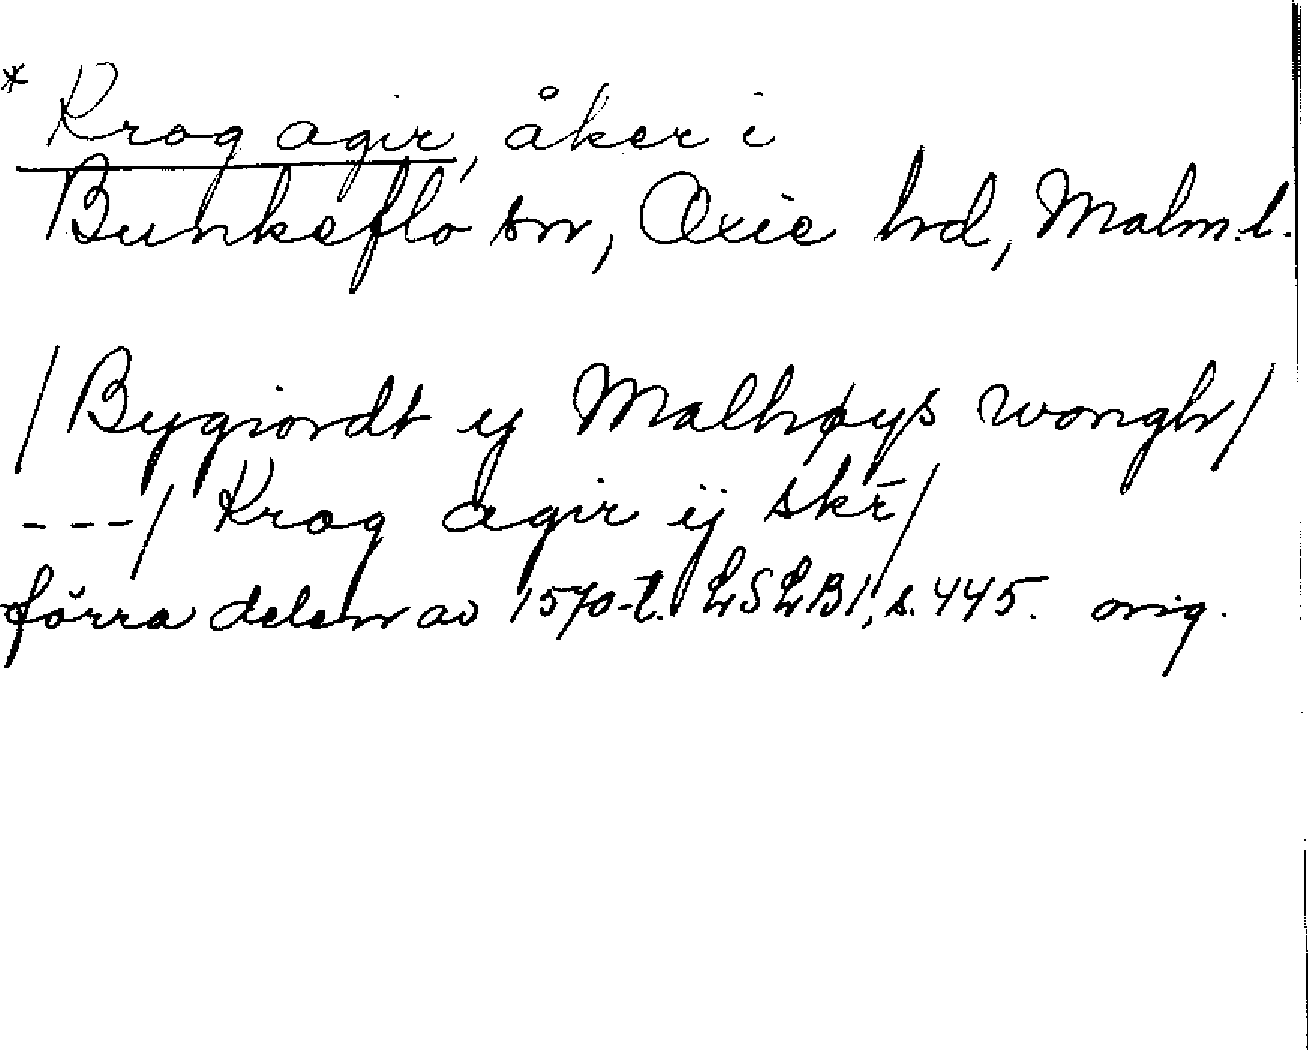 * Krog agir, åker i
Bunkeflo sn, Oxie hd, Malm.l.
/Bygiordt ij Malhøys wongh/
---/ Krog agir ij skē/
förra delen av 1570-t. LSLB1, s. 445. orig.